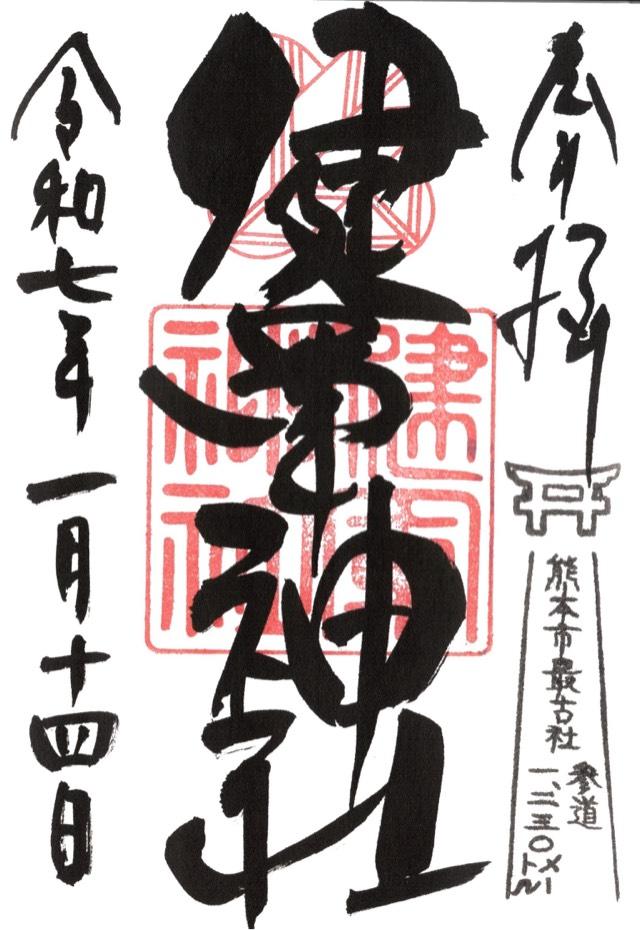 奉拝
熊本市最古社
参道
一、二五〇メートル
健軍神社
令和七年 一月十四日